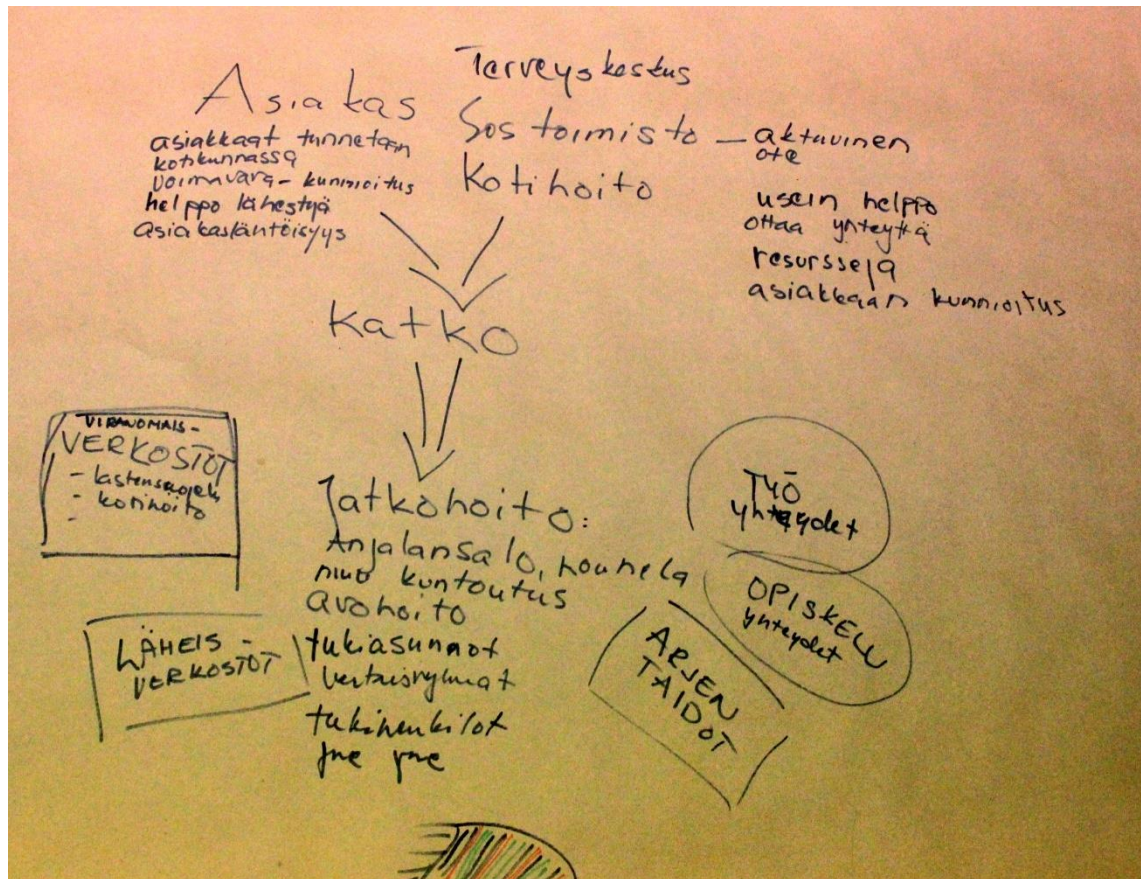 Asiakas
asiakkaat tunnetaan
kotikunnassa
voimavara - kunnioitus
helppo lähestyä
asiakaslähtöisyys
Terveyskeskus
Sos toimisto - aktiivinen
ote
Kotihoito
usein helppo
ottaa yhteyttä
resursseja
asiakkaan kunnioitus
Katko
VIRANOMAIS-
VERKOSTOT
- lastensuojelu
- kotihoito
-
Jatkohoito:
Anjalansalo,
muu kuntoutus
avohoito
tukiasunnot
vertaisryhmät
tukihenkilöt
jne jne
LÄHEIS-
VERKOSTOT
TYÖ
yhteydet
OPISKELU
yhteydet
ARJEN
TAIDOT